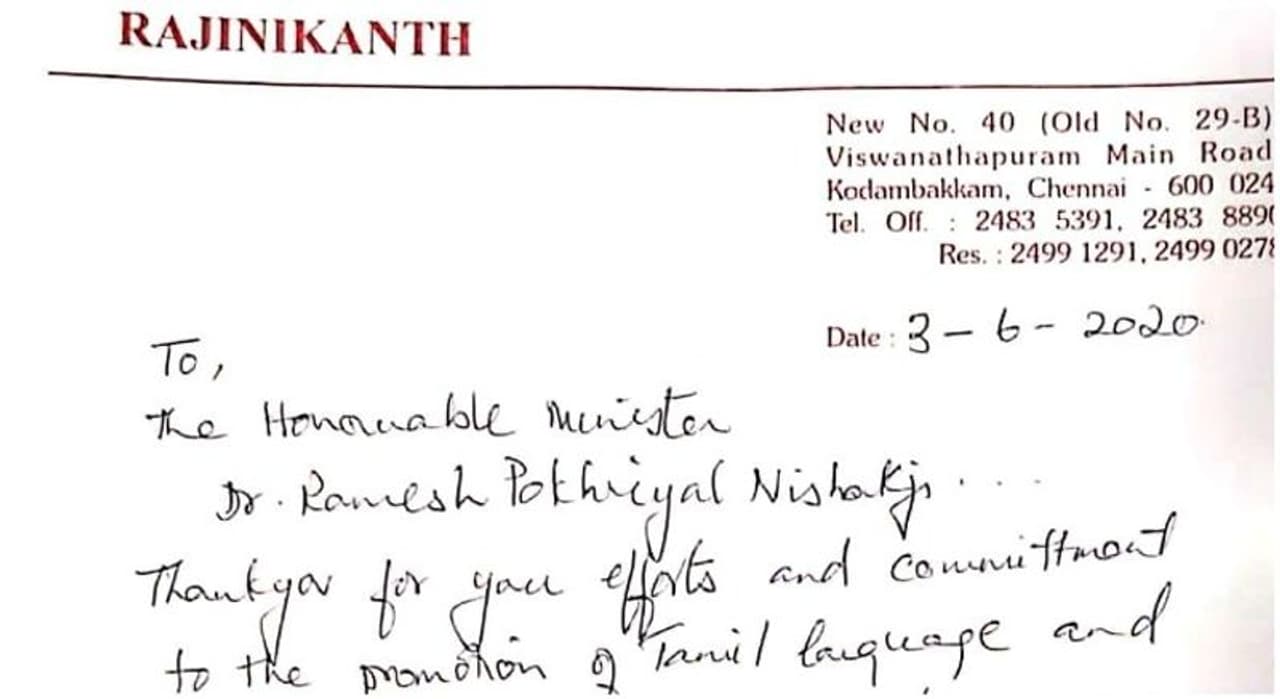 RAJINIKANTH
New No. 40 (Old No. 29-B)
Viswanathapuram Main Road
Kodambakkam, Chennai - 600 024
Tel. Off. : 2483 5391, 2483 889
Res. : 2499 1291, 2499 027
Date : 3 - 6 - 2020
To,
The Honourable Minister
Dr. Ramesh Pokhriyal Nishakji . . .
Thankyou for your efforts and committment
to the promotion of Tamil language and